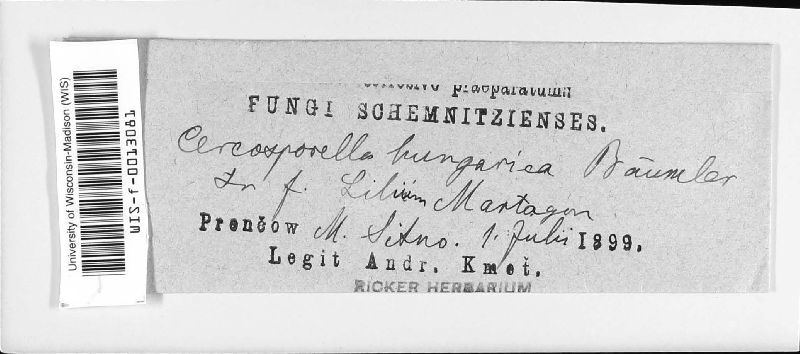 University of Wisconsin-Madison (WIS)
WIS-f-0013081
corrosivo praeparatum!!
FUNGI SCHEMNITZIENSES.
Cercosporella hungarica Bäumler
In f. Lilium Martagon
Prenčow M. Sitno. 1. Julii 1899.
Legit Andr. Kmeť.
RICKER HERBARIUM